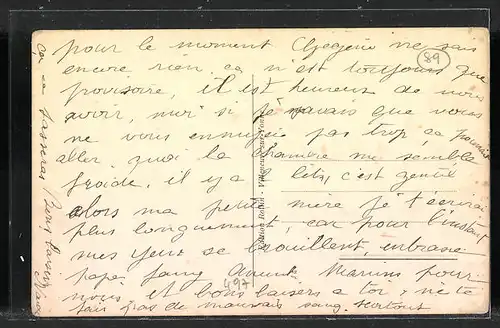 pour le moment ne sais
encore rien, ce n'est toujours que
provisoire, il est heureux de nous
avoir, mui si je savais que vous
ne vous ennuyie pas trop, ça pourrais
aller, quoi la chambre me semble
froide, il y a 2 lits, c'est gentil
alors ma petite mère je t'écrirai
plus longuement, car pour l'instant
mes yeux se brouillent, embrasse
papa, pour
nous et bons baisers a toi, ne te
fais pas de mauvais sang. surtout
89
497
Villeneuve-sur-Yonne